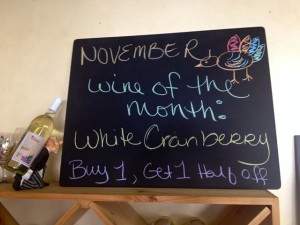 NOVEMBER
wine of the
month:
White Cranberry
Buy 1, Get 1 Half off